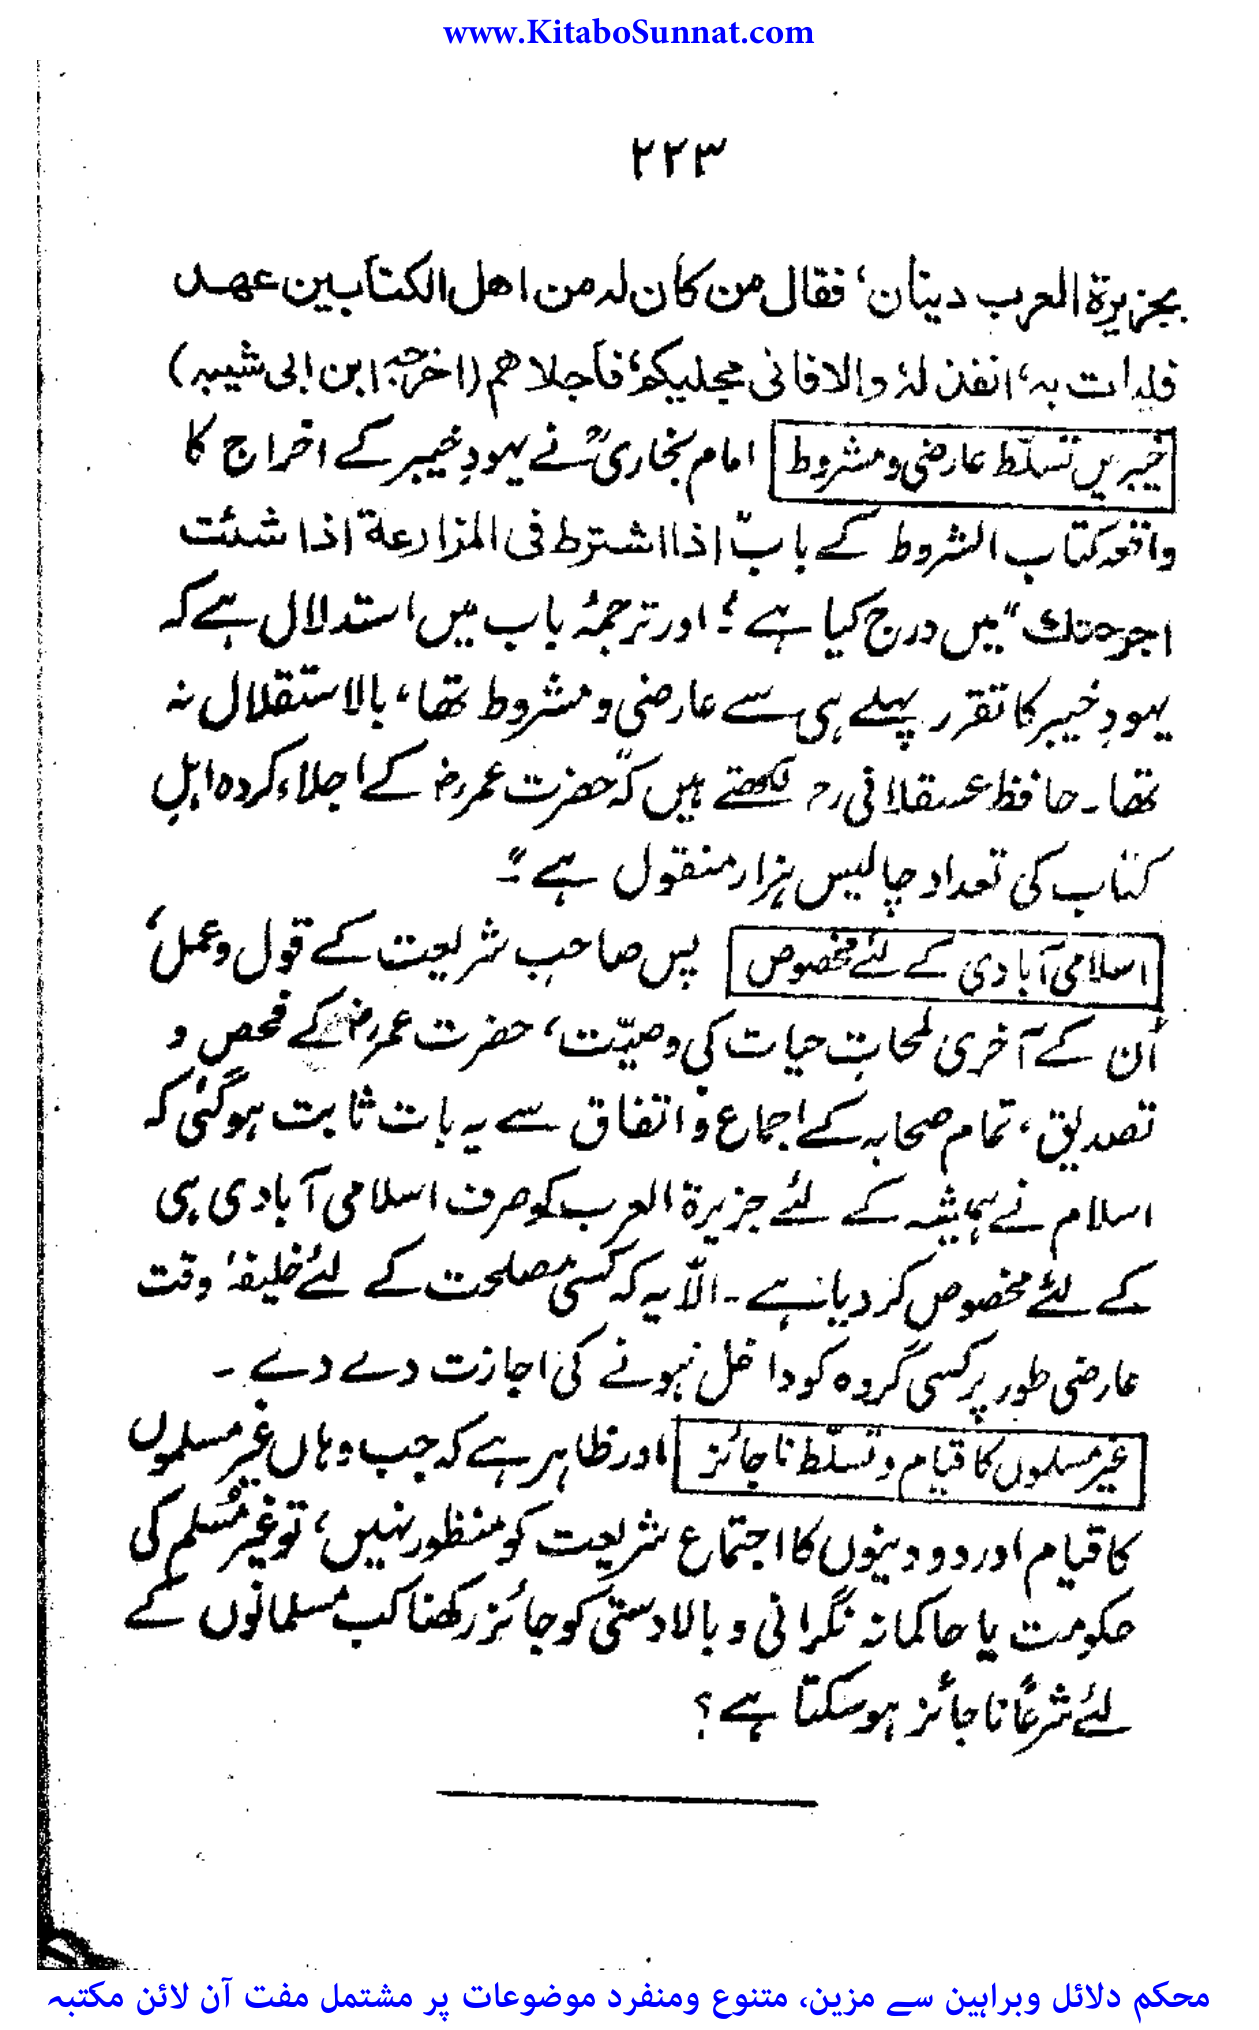 www.KitaboSunnat.com
۲۲۳
بجزیرۃ العرب دینان، فقال من کان لہ من اھل الکتابین عھد
فلیات بہ، انفذ لہٗ والا فانی مجلیکم، فاجلاھم (اخرجہ ابن ابی شیبہ)
خیبر میں تسلّط عارضی و مشروط امام بخاریؒ نے یہودِ خیبر کے اخراج کا
واقعہ کتاب الشروط کے باب ”اذا اشترط فی المزارعة اذا شئت
اخرجتك“ میں درج کیا ہے؛ اور ترجمۂ باب میں استدلال ہے کہ
یہودِ خیبر کا تقرر پہلے ہی سے عارضی و مشروط تھا، بالاستقلال نہ
تھا۔ حافظ عسقلانی رح لکھتے ہیں کہ ”حضرت عمر رض کے اجلاء کردہ اہلِ
کتاب کی تعداد چالیس ہزار منقول ہے“۔
اسلامی آبادی کے لئے مخصوص پس صاحبِ شریعت کے قول و عمل،
اُن کے آخری لمحاتِ حیات کی وصیّت، حضرت عمر رض کے فحص و
تصدیق، تمام صحابہ کے اجماع و اتفاق سے یہ بات ثابت ہوگئی کہ
اسلام نے ہمیشہ کے لئے جزیرۃ العرب کو صرف اسلامی آبادی ہی
کے لئے مخصوص کر دیا ہے۔ الاّ یہ کہ کسی مصلحت کے لئے خلیفۂ وقت
عارضی طور پر کسی گروہ کو داخل ہونے کی اجازت دے دے۔
غیر مسلموں کا قیام و تسلّط ناجائز اور ظاہر ہے کہ جب وہاں غیر مسلموں
کا قیام اور دو دینوں کا اجتماع شریعت کو منظور نہیں، تو غیر مُسلم کی
حکومت یا حاکمانہ نگرانی و بالادستی کو جائز رکھنا کب مسلمانوں کے
لئے شرعًا ناجائز ہوسکتا ہے؟
محکم دلائل وبراہین سے مزین، متنوع ومنفرد موضوعات پر مشتمل مفت آن لائن مکتبہ